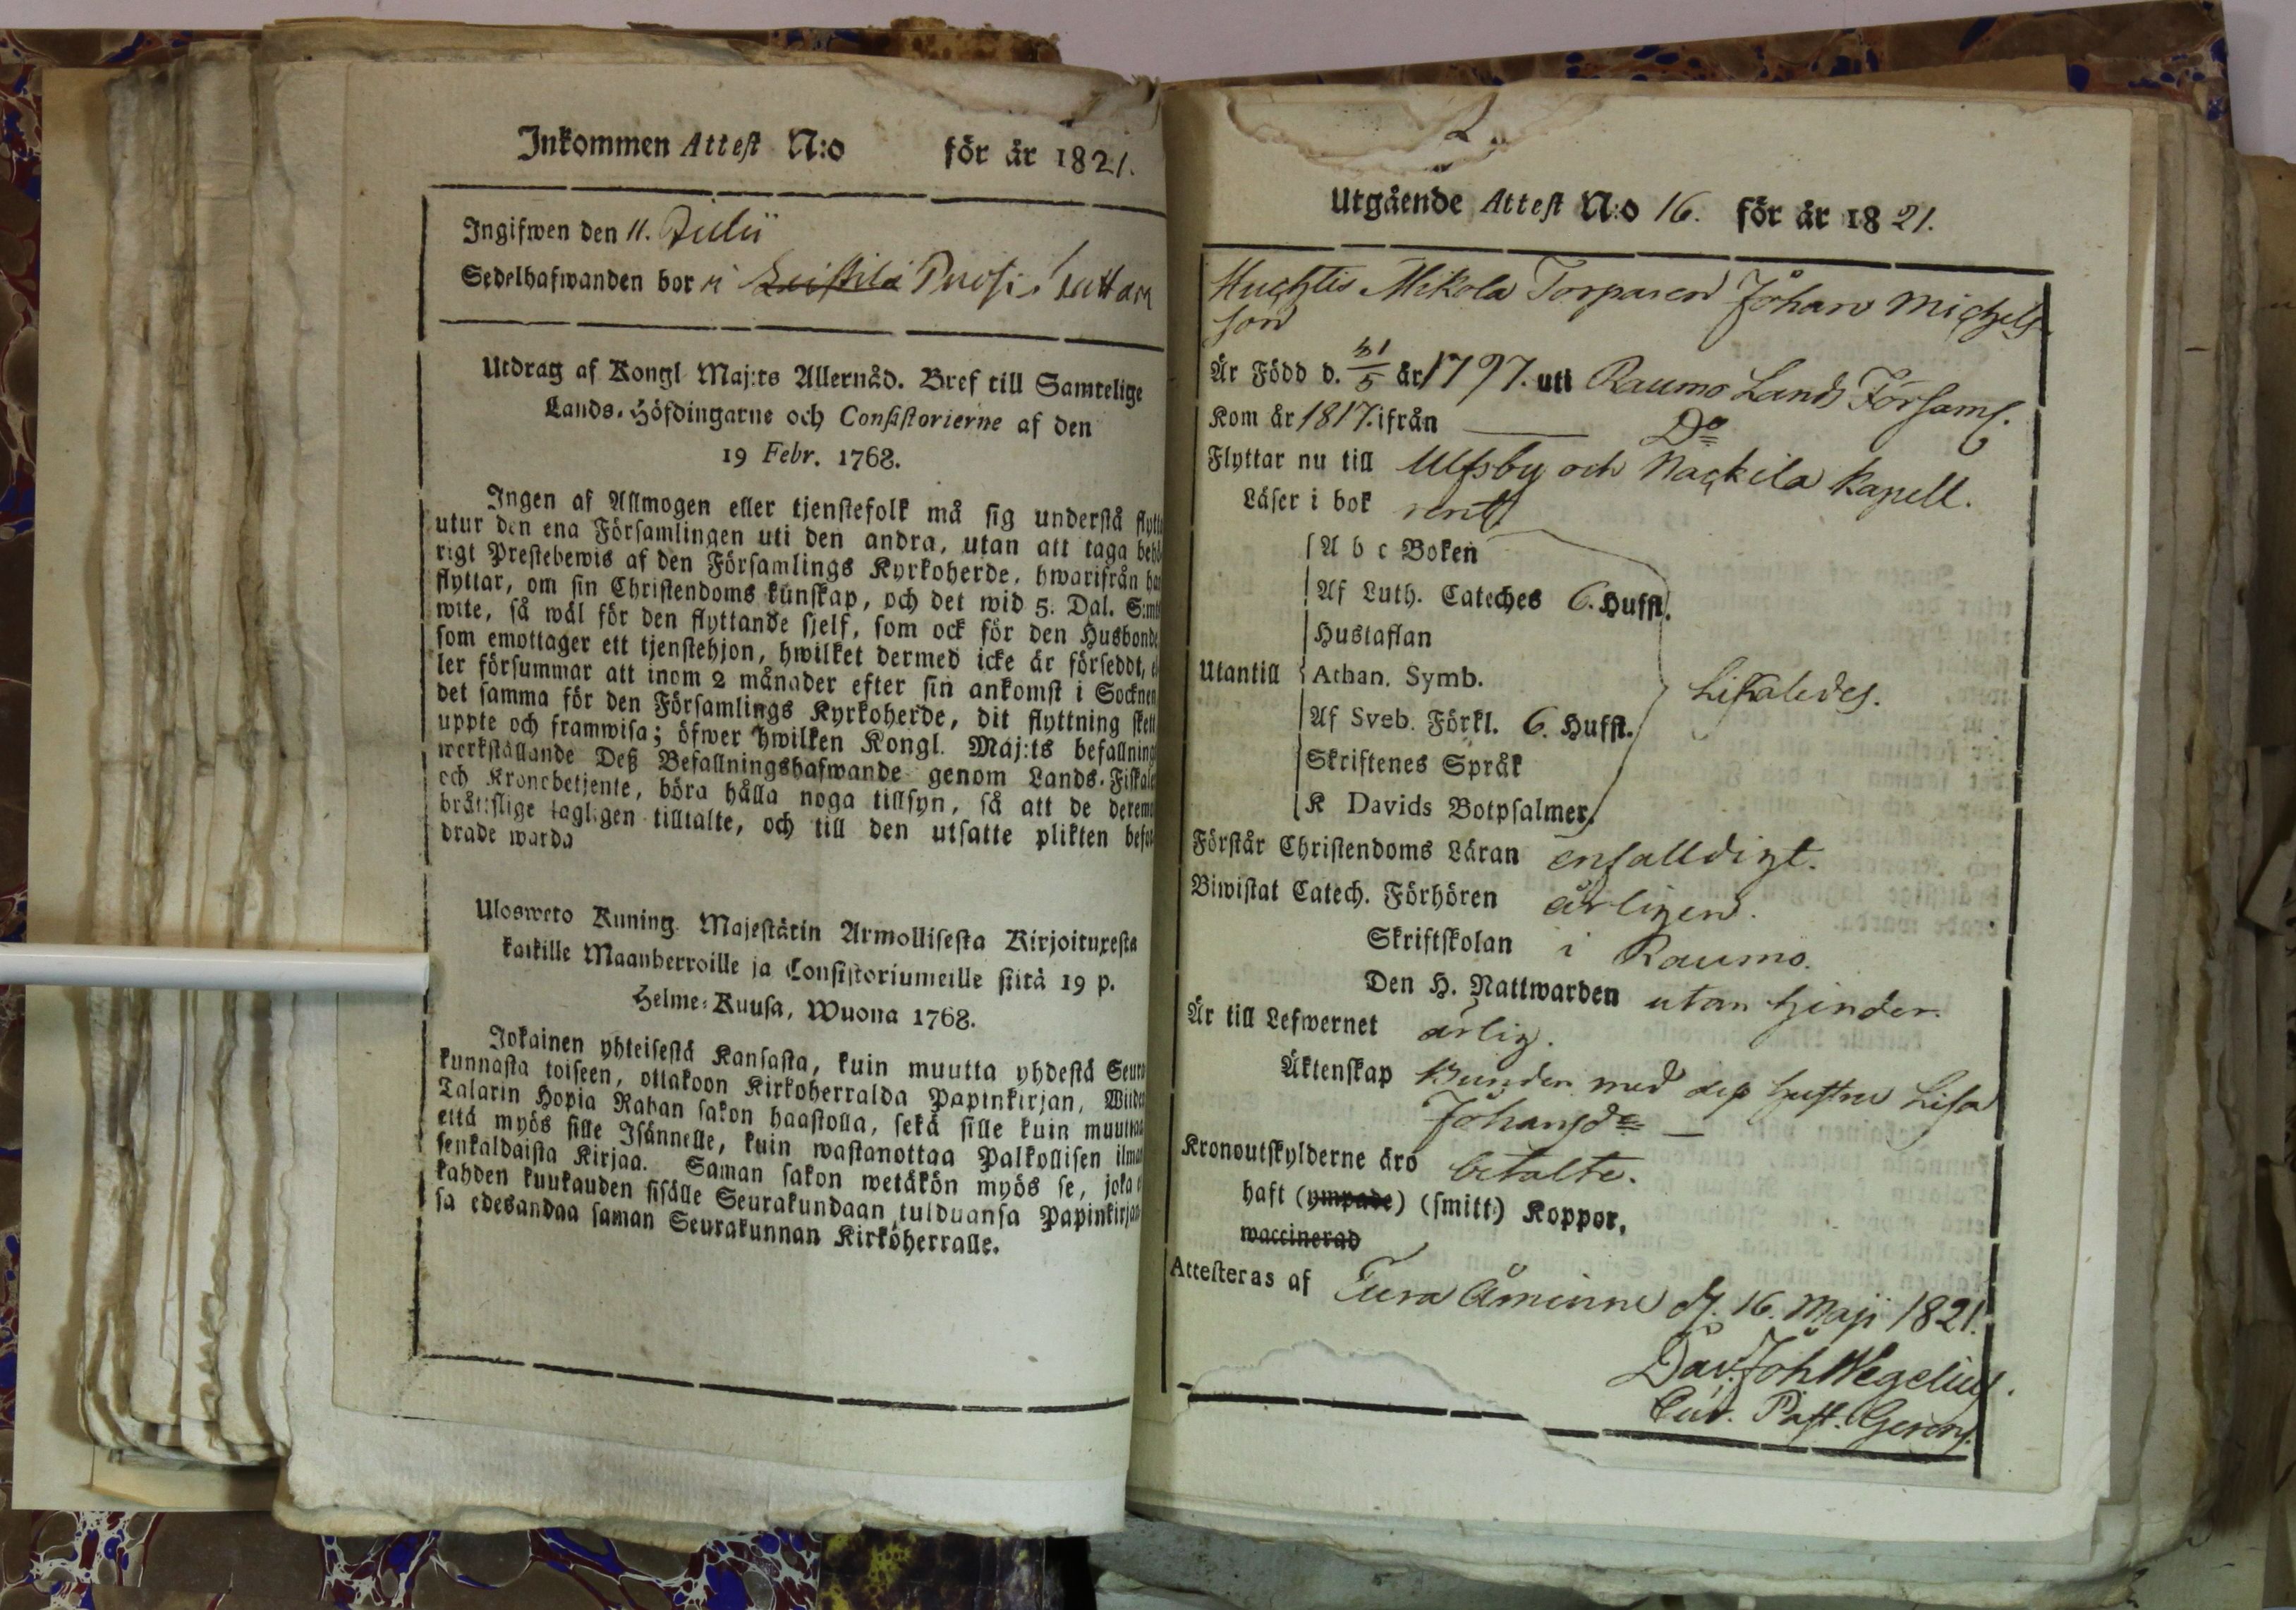 Inkommen Attest N:o för år 1821.
Ingifwen den 11. Julii
Sedelhafwanden bor i
Utdrag af Kongl Maj:ts Allernåd. Bref till Samtelige
Lands-Höfdingarne och Consistorierne af den
19 Febr. 1768.
Ingen af Allmogen eller tjenstefolk må sig understå flytta
utur den ena Församlingen uti den andra, utan att taga behö
rigt Prestebewis af den Församlings Kyrkoherde, hwarifrån han
flyttar, om sin Christendoms kunskap, och det wid 5. Dal. S:mts
wite, så wäl för den flyttande sjelf, som ock för den Husbonde
som emottager ett tjenstehjon, hwilket dermed icke är försedt, el
ler försummar att inom 2 månader efter sin ankomst i Socknen
det samma för den Församlings Kyrkoherde, dit flyttning skett
uppte och framwisa; öfwer hwilken Kongl. Maj:ts befallning
werkställande Deß Befallningshafwande genom Lands-Fiskale
och Kronobetjente, böra hålla noga tillsyn, så att de deremo
bråttslige lagligen tilltalte, och till den utsatte plikten befo
drade warda
Ulosweto Kuning. Majestätin Armollisesta Kirjoituxesta
kaikille Maanherroille ja Consistoriumeille siitä 19 p.
Helme-Kuusa, Wuona 1768.
Jokainen yhteisestä Kansasta, kuin muutta yhdestä Seura
kunnasta toiseen, ottakoon Kirkoherralda Papinkirjan, Wiiden
Talarin Hopia Rahan sakon haastolla, sekä sille kuin muuttaa
että myös sille Isännelle, kuin wastanottaa Palkollisen ilman
senkaldaista Kirjaa. Saman sakon wetäkön myös se, joka e
kahden kuukauden sisälle Seurakundaan tulduansa Papinkirjan
sa edesandaa saman Seurakunnan Kirkoherralle.
2
Utgående Attest N:o 16. för år 1821.
Mikola Torparen Johan Michels-
son
Är Född d. 31/5 år 1797. uti Raumo Lands Församl.
Kom år 1817. ifrån Do
Flyttar nu till Ulfsby och Nackila Kapell.
Läser i bok rent
A b c Boken
Af Luth. Cateches 6. Hufst.
Hustaflan
Utantill Athan. Symb. Likaledes.
Af Sveb. Förkl. 6. Hufst.
Skriftenes Språk
K Davids Botpsalmer.
Förstår Christendoms Läran enfalldigt.
Biwistat Catech. Förhören årligen.
Skriftskolan i Raumo.
Den H. Nattwarden utan hinder.
Är till Lefwernet ärlig.
Äktenskap bunden med dess hustru Lisa
Johansdr
Kronoutskylderne äro betalte.
haft (ympade) (smitt) Koppor,
waccinerad
Attesteras af Eura Åminne d. 16. Maji 1821.
Dav. Joh Wegelius.